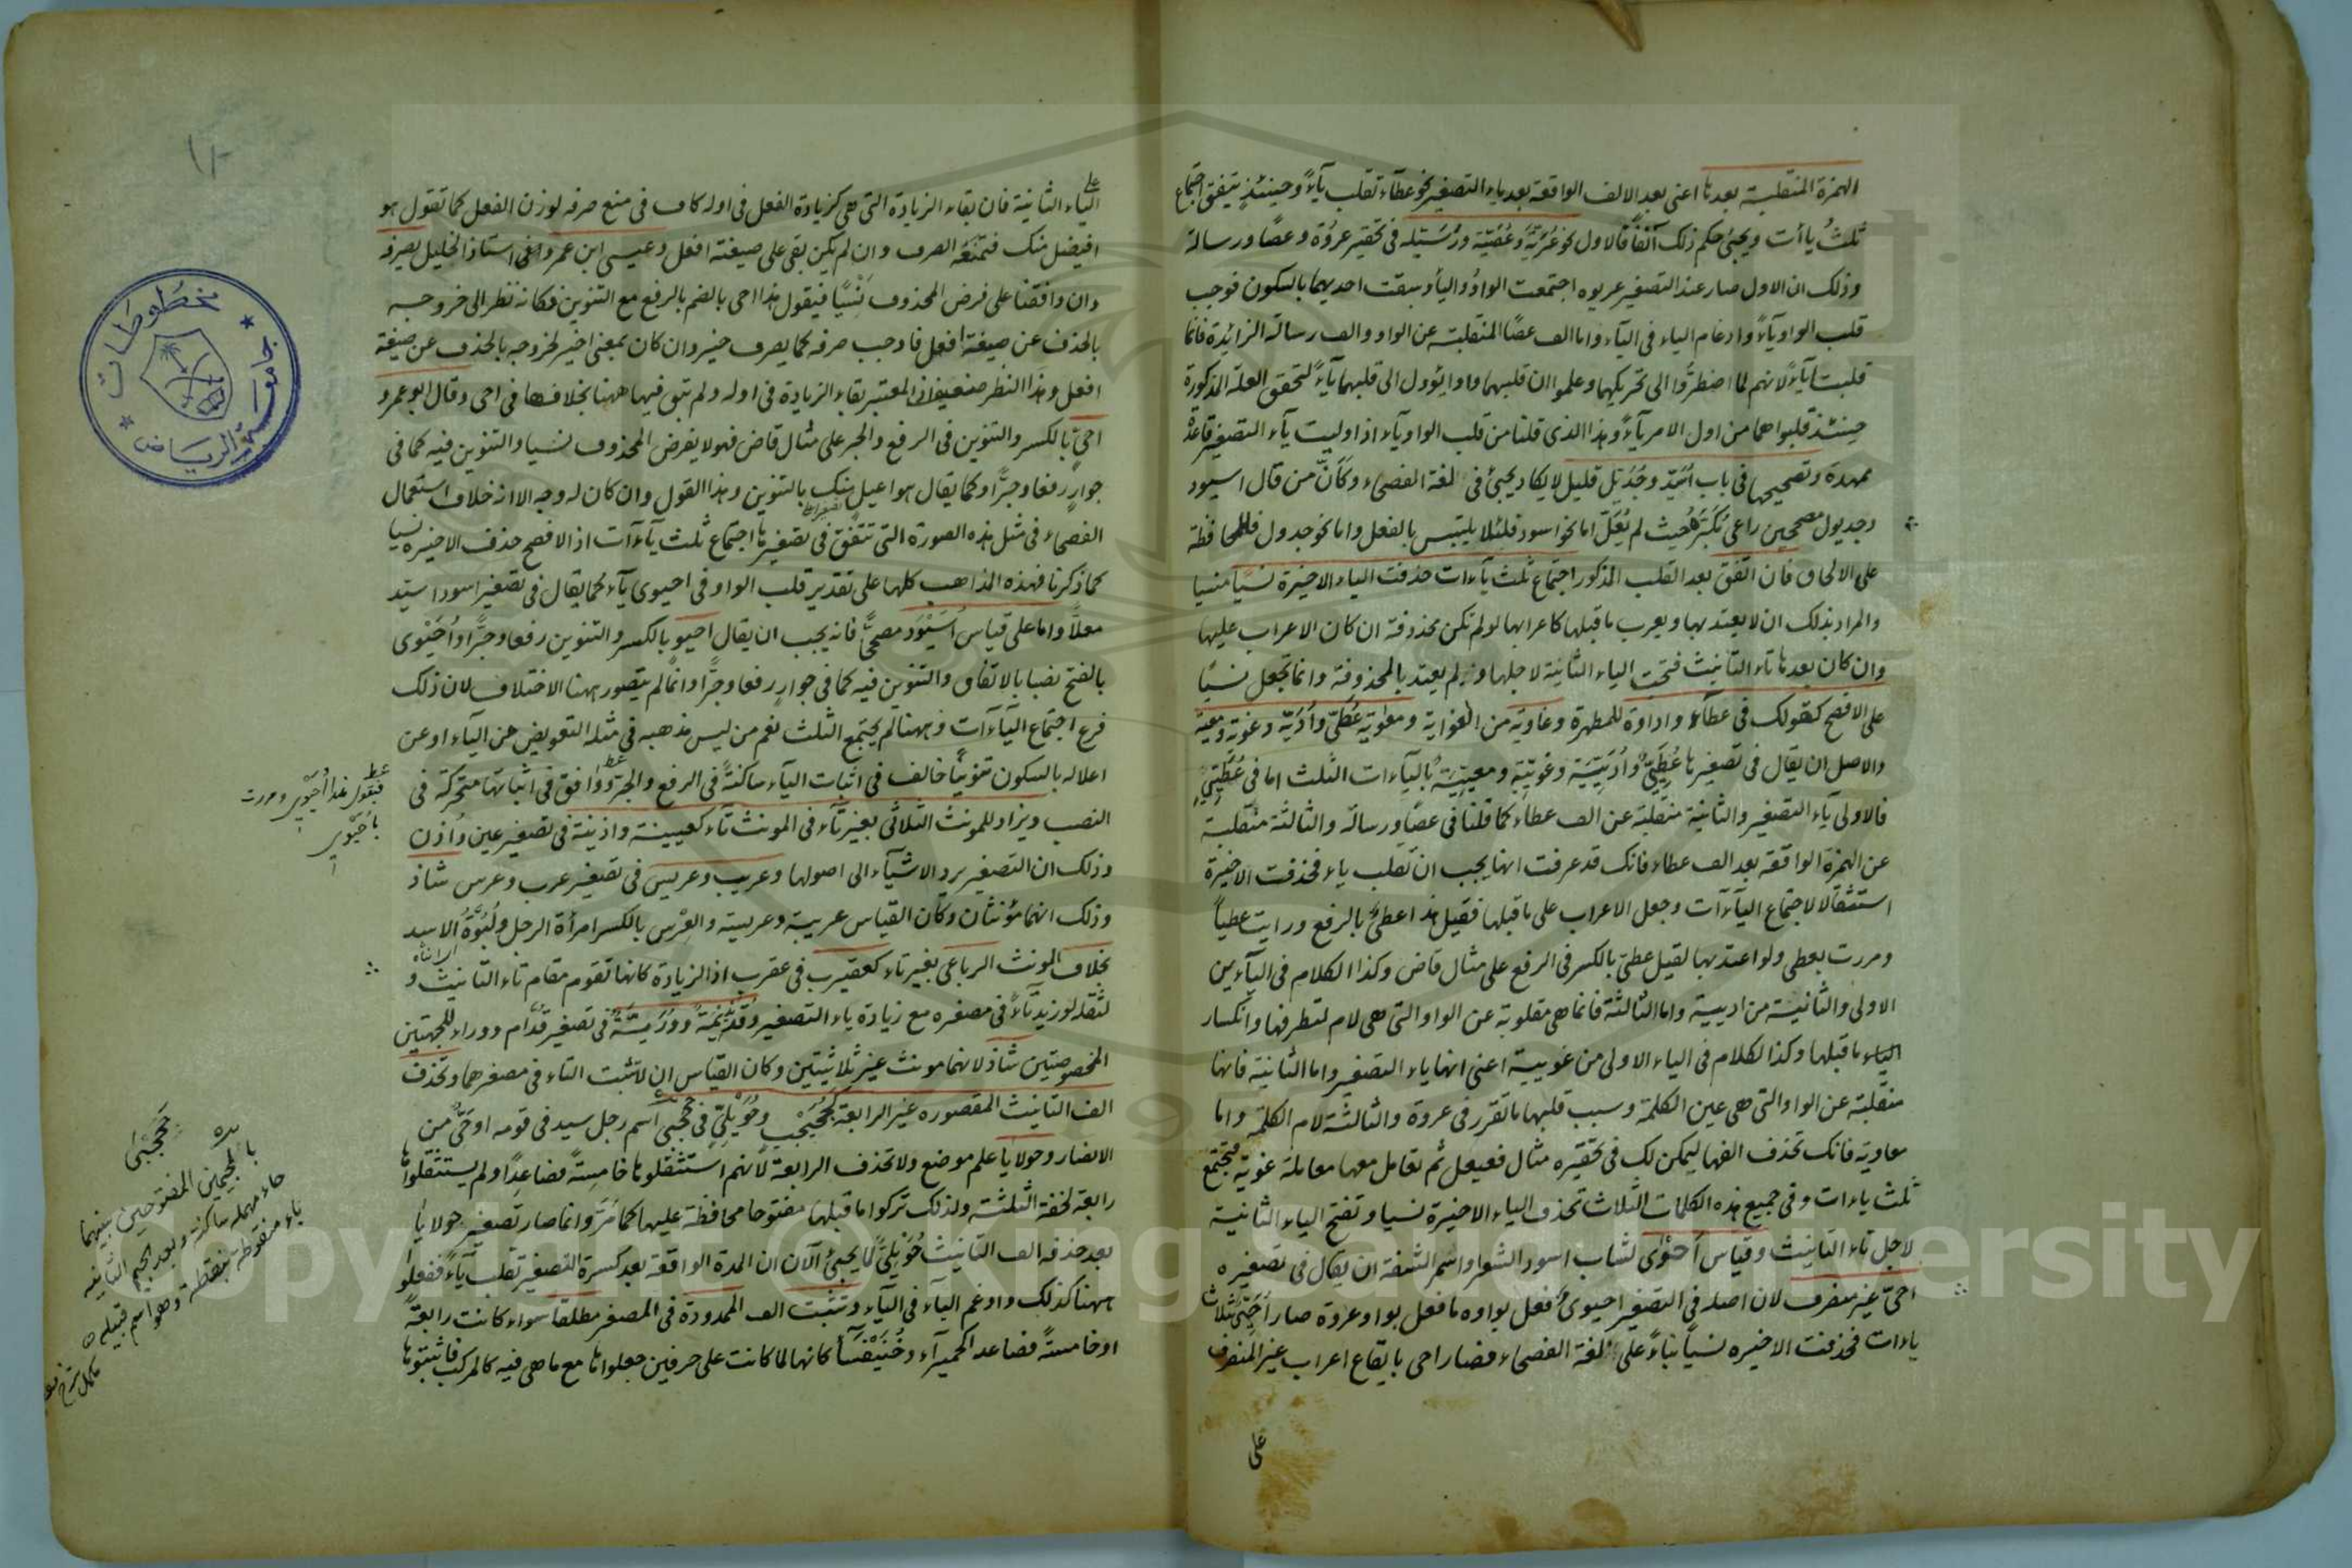 الهمزة المنقلبة بعدها اعنى بعد الالف الواقعة بعد ياء التصغير نحو عطاء تقلب ياءً وحينئذٍ يتفق اجتماع
ثلثُ ياأت ويجئ حكم ذلك آنفًا فالاول نحو عُرَيَّة وعُصَيّة ورُسَيّله فى تحقير عروة وعصًا ورسالة
وذلك ان الاول صار عند التصغير عريوه اجتمعت الواوُ والياُ وسبقت احديهما بالسكون فوجب
قلب الواو ياءً وادغام الياء فى الياء واما الف عصًا المنقلبة عن الواو والف رسالة الزائدة فانما
قلبتا ياءً لانهم لما اضطرُّوا الى تحريكهما وعلموا ان قلبهما واوا يؤول الى قلبهما ياءً لتحقق العلة المذكورة
حينئذ قلبوا هما من اول الامر ياءً وهذا الذى قلنا من قلب الواو ياء اذا وليت ياء التصغير قاعدة
ممهدة وتصحيحها فى باب اُسَيّد وجُدَيّل قليل لا يكاد يجئ فى لغة الفصحاء وكأنّ من قال اسيود
وجديول مصححين راعى مُكَبَّرهُ حيث لم يُعَلّ اما نحو اسود فلئلا يلتبس بالفعل واما نحو جدول فللمحافظة
على الالحاق فان اتفق بعد القلب المذكور اجتماع ثلث ياءات حذفت الياء الاخيرة نسيًا منسيا
والمراد بذلك ان لا يعتد بها ويعرب ما قبلها كاعرابها لو لم تكن محذوفة ان كان الاعراب عليها
وان كان بعدها تاء التانيث فتحت الياء الثانية لاجلها ولم يعتد بالمحذوفة وانما تجعل نسيًا
على الافصح كقولك فى عطاء واداوة للمطهرة وغاوية من الغواية ومعاوية عُطَىّ واُدَيّة وغوية ومعية
والاصل ان يقال فى تصغيرها عُطَيّىٌ واُدَيّيَة وغويّية ومعيّية بالياءات الثلث اما فى عُطَيّىٍ
فالاولى ياء التصغير والثانية منقلبة عن الف عطاء كما قلنا فى عصًا ورسالة والثالثة منقلبة
عن الهمزة الواقعة بعد الف عطاء فانك قد عرفت انها يجب ان تقلب ياء فحذفت الاخيرة
استثقالا لاجتماع الياآت وجعل الاعراب على ما قبلها فقيل هذا عطىٌّ بالرفع ورايت عطياً
ومررت بعطى ولو اعتد بها لقيل عطىّ بالكسر فى الرفع على مثال قاض وكذا الكلام فى الياءين
الاولى والثانية من اديية واما الثالثة فانما هى مقلوبة عن الواو التى هى لام لتطرفها وانكسار
الياء ما قبلها وكذا الكلام فى الياء الاولى من غويية اعنى انها ياء التصغير واما الثانية فانها
منقلبة عن الواو التى هى عين الكلمة وسبب قلبها ما تقرر فى عروة والثالثة لام الكلمة واما
معاوية فانك تحذف الفها ليمكن لك فى تحقيره مثال فعيعل ثم تعامل معها معاملة غوية فتجتمع
ثلث ياءات وفى جميع هذه الكلمات الثلاث تحذف الياء الاخيرة نسيا وتفتح الياء الثانية
لاجل تاء التانيث وقياس اَحْوٰى لشاب اسود الشعر او اسمر الشفة ان يقال فى تصغيره
احىّ غير منصرف لان اصله فى التصغير احيوىُ ففعل بواوه ما فعل بواو عروة صار اُحَيّىُ بثلاث
ياءات فحذفت الاخيره نسيًا بناءً على لغة الفصحاء فصار احى بايقاع اعراب غير المنصرف
على
على
الياء الثانية فان بقاء الزيادة التى هى كزيادة الفعل فى اوله كاف فى منع صرفه لوزن الفعل كما تقول هو
افيضل منك فتمنعه الصرف وان لم يكن بقى على صيغة افعل وعيسى ابن عمرو اعنى استاذ الخليل يصرفه
وان وافقنا على فرض المحذوف نسيًا فيقول هذا احى بالضم بالرفع مع التنوين فكانه نظر الى خروجه
بالحذف عن صيغة افعل فاوجب صرفه كما يصرف خير وان كان بمعنى اخير لخروجه بالحذف عن صيغة
افعل وهذا النظر ضعيف اذ المعتبر بقاء الزيادة فى اوله ولم تبق فيها ههنا بخلافها فى احى وقال ابو عمرو
احىٍّ بالكسر والتنوين فى الرفع والجر على مثال قاض فهو لا يفرض المحذوف نسيا والتنوين فيه كما فى
جوارٍ رفعا وجرًّا وكما يقال هو اعيل منك بالتنوين وهذا القول وان كان له وجه الا انه خلاف استعمال
الفصحاء فى مثل هذه الصورة التى تتفق فى تصغيرها اجتماع ثلث ياءآت اذ الافصح حذف الاخيره نسيا
كما ذكرنا فهذه المذاهب كلها على تقدير قلب الواو فى احيوى ياء كما يقال فى تصغير اسود اسيّد
معلاً واما على قياس اُسَيْوِد مصححًا فانه يجب ان يقال احيوٍ بالكسر والتنوين رفعا وجرًّا واُحَيْوِى
بالفتح نصبا بالاتفاق والتنوين فيه كما فى جوارٍ رفعا وجرًّا وانما لم يتصور ههنا الاختلاف لان ذلك
فرع اجتماع الياءآت وههنا لم يجتمع الثلث نعم من ليس مذهبه فى مثله التعويض عن الياء او عن
اعلاله بالسكون تنوينًا خالف فى اثبات الياء ساكنةً فى الرفع والجر ووافق فى اثباتها متحركة فى
النصب ويزاد للمونث الثلاثى بغير تاء فى المونث تاء كعيينة واذينة فى تصغير عين واُذن
وذلك ان التصغير يرد الاشياء الى اصولها وعريب وعريس فى تصغير عرب وعرس شاذ
وذلك انهما مؤنثان وكان القياس عريبة وعريسة والعِرْس بالكسر امرأة الرجل ولَبُوَّةُ الاسد
بخلاف المونث الرباعى بغير تاء كعقيرب فى عقرب اذ الزيادة كانها تقوم مقام تاء التانيث و
لثقله لو زيد تاءً فى مصغره مع زيادة ياء التصغير وقُدَيْدِيْمَةٌ ووُرَيّئةٌ فى تصغير قدّام ووراء للجهتين
المخصوصتين شاذ لانهما مونث غير ثلاثيتين وكان القياس ان لا تثبت التاء فى مصغرهما وتحذف
الف التانيث المقصوره غير الرابعة كجُحَيْجِب وحُوَيْلِىّ فى جحجبى اسم رجل سيد فى قومه او حىٌّ من
الانصار وحولايا علم موضع ولا تحذف الرابعة لانهم استثقلوها خامسةً فصاعدًا ولم يستثقلوها
رابعة لخفة الثلثة ولذلك تركوا ما قبلها مفتوحا محافظة عليها كما مَرّ وانما صار تصغير حولايا
بعد حذفه الف التانيث حُوَيْلِىًّ لما يجئ الآن ان المدة الواقعة بعد كسرة التصغير تقلب ياءً ففعلوا
ههنا كذلك وادغم الياء فى الياء وتثبت الف الممدودة فى المصغر مطلقا سواء كانت رابعةً
او خامسةً فصاعد اكحميرآء وخُنَيْفِسَآء كانها لما كانت على حرفين جعلوها مع ما هى فيه كالمركب فاثبتوها
فيقول هذا اُحَيْوِى ومررت
باُحَيْوِى
جَحْجَبٰى
بالجيمين المفتوحتين بينهما
حاء مهملة ساكنة وبعد الجيم الثانيه
باء منقوطة بنقطة وهو اسم قبيله
جامعة الرياض
مخطوطات
Copyright © King Saud University